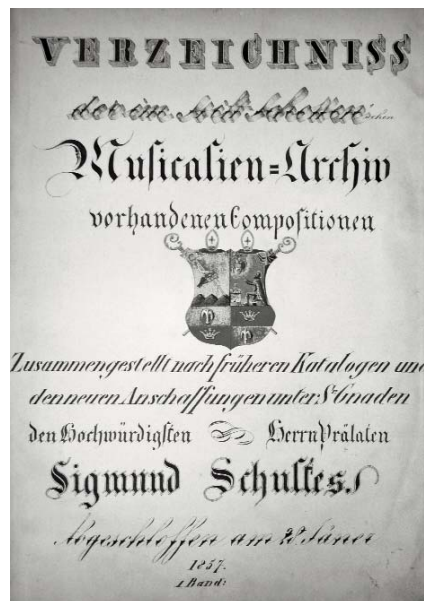 VERZEICHNISS
der im Stift Schotten'schen
Musicalien=Archiv
vorhandenen Compositionen
Zusammengestellt nach früheren Katalogen und
den neuen Anschaffungen unter Sr Gnaden
den Hochwürdigsten Herrn Prälaten
Sigmund Schultes.
Abgeschlossen am Jäner
1857.
1 Band: